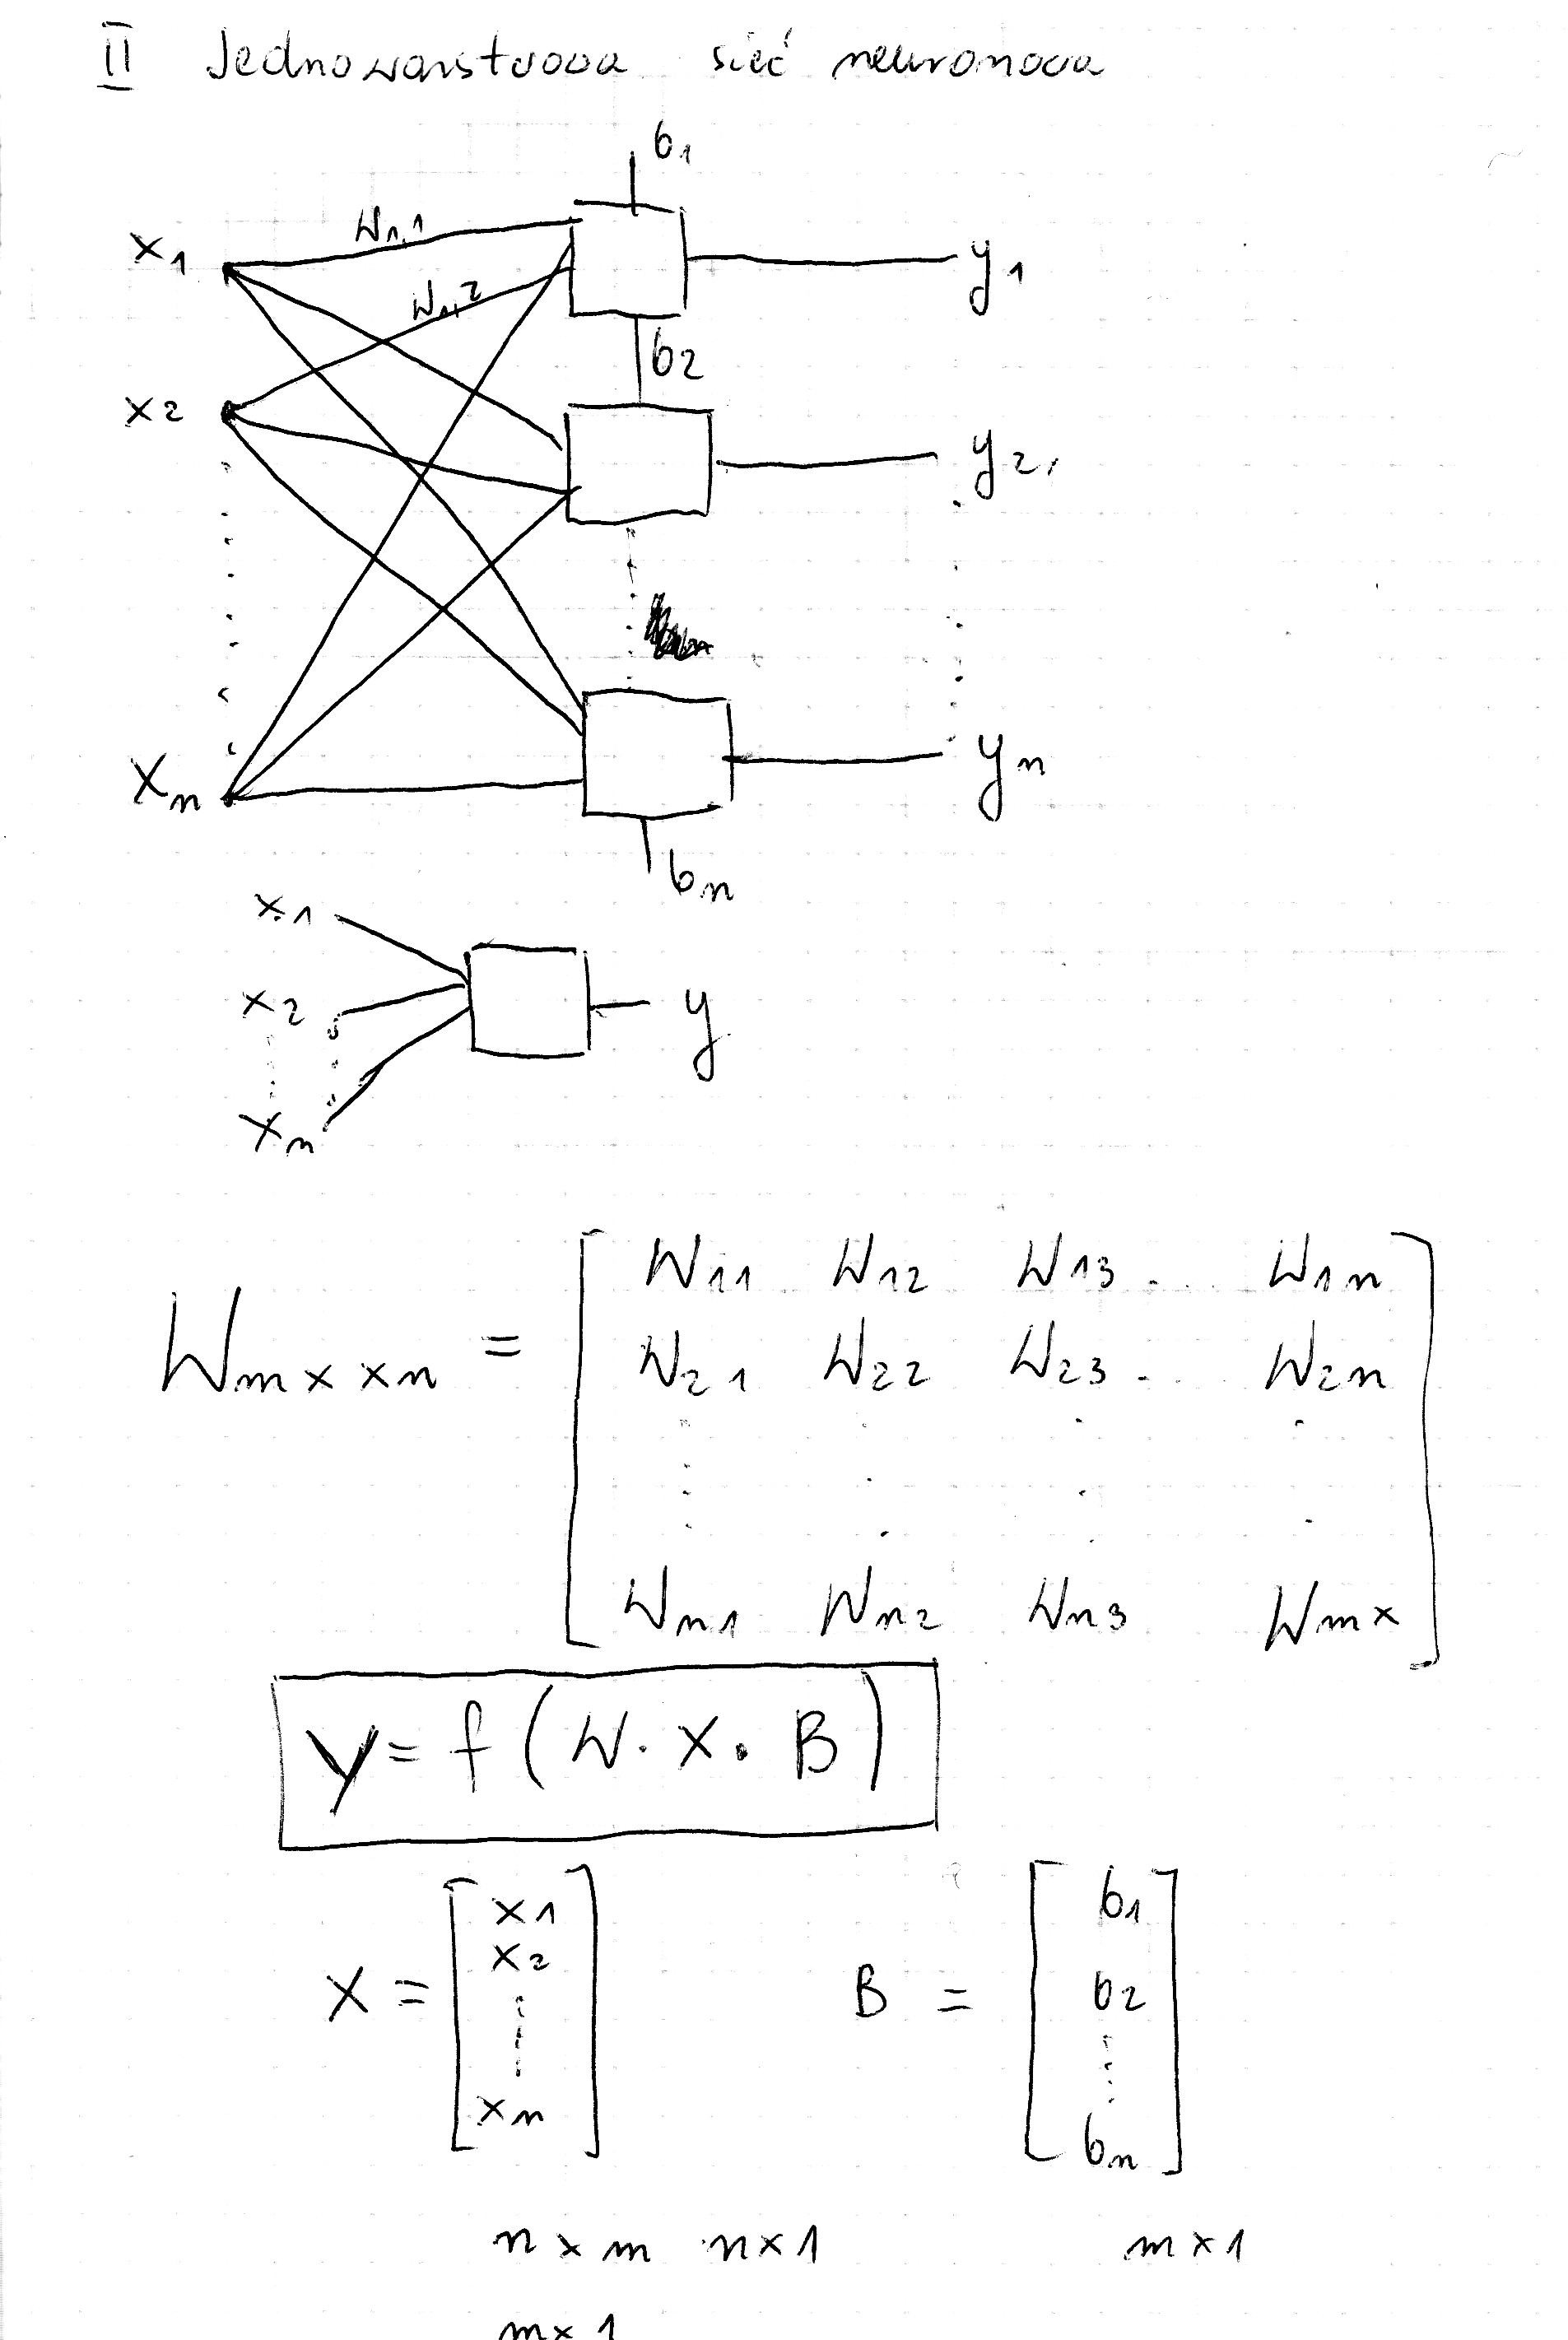 II Jednowarstwowa sieć neuronowa
b1
x1 W1,1 y1
W1,2
b2
x2 y2
xn yn
bn
x1
x2 y
xn
Wm x xn = [ W11 W12 W13 ... W1n
W21 W22 W23 ... W2n
Wn1 Wn2 Wn3 Wmx ]
y = f ( W · X · B )
X = [ x1 x2 xn ] B = [ b1 b2 bn ]
n x m · n x 1 m x 1
m x 1